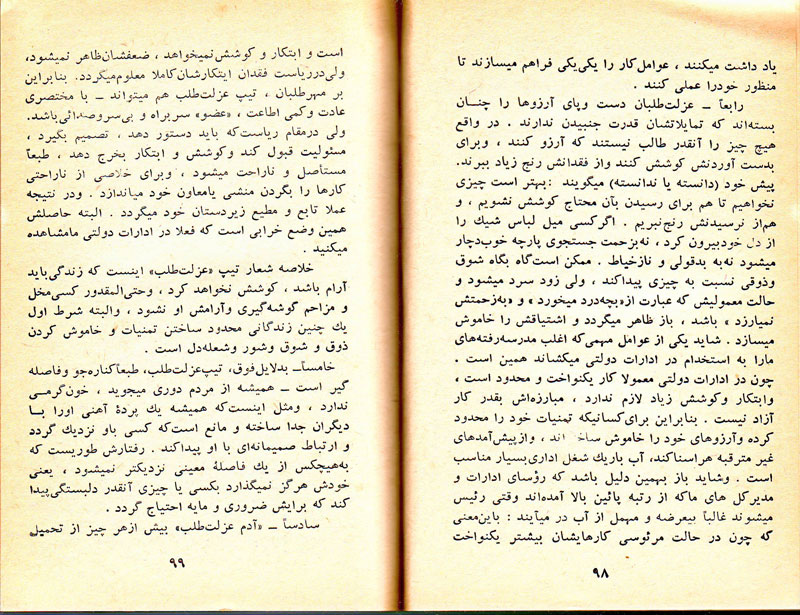 یاد داشت میکنند ، عوامل کار را یکی‌یکی فراهم میسازند تا
منظور خودرا عملی کنند .
رابعاً ــ عزلت‌طلبان دست وپای آرزوها را چنان
بسته‌اند که تمایلاتشان قدرت جنبیدن ندارند . در واقع
هیچ چیز را آنقدر طالب نیستند که آرزو کنند ، وبرای
بدست آوردنش کوشش کنند واز فقدانش رنج زیاد ببرند.
پیش خود (دانسته یا ندانسته) میگویند : بهتر است چیزی
نخواهیم تا هم برای رسیدن بآن محتاج کوشش نشویم ، و
هم‌از نرسیدنش رنج‌نبریم . اگر کسی میل لباس شیك را
از دل خودبیرون کرد ، نه‌بزحمت جستجوی پارچه خوب‌دچار
میشود نه‌به بدقولی و نازخیاط . ممکن است‌گاه بگاه شوق
وذوقی نسبت به چیزی پیداکند ، ولی زود سرد میشود و
حالت معمولیش که عبارت از«بچه‌درد میخورد» و«به‌زحمتش
نمیارزد» باشد ، باز ظاهر میگردد و اشتیاقش را خاموش
میسازد . شاید یکی از عوامل مهمی‌که اغلب مدرسه‌رفته‌های
مارا به استخدام در ادارات دولتی میکشاند همین است .
چون در ادارات دولتی معمولا کار یکنواخت و محدود است ،
وابتکار وکوشش زیاد لازم ندارد ، مبارزه‌اش بقدر کار
آزاد نیست . بنابراین برای‌کسانیکه تمنیات خود را محدود
کرده وآرزوهای خود را خاموش ساخته‌اند ، وازپیش‌آمدهای
غیر مترقبه هراسناکند، آب باریك شغل اداری‌بسیار مناسب
است . وشاید باز بهمین دلیل باشد که رؤسای ادارات و
مدیرکل های ماکه از رتبه پائین بالا آمده‌اند وقتی رئیس
میشوند غالباً بیعرضه و مهمل از آب در میآیند : باین‌معنی
که چون در حالت مرئوسی کارهایشان بیشتر یکنواخت
۹۸
است و ابتکار و کوشش‌نمیخواهد ، ضعفشان‌ظاهر نمیشود،
ولی‌درریاست فقدان ابتکارشان‌کاملا معلوم‌میگردد. بنابراین
بر مهرطلبان ، تیپ عزلت‌طلب هم میتواند ــ با مختصری
عادت وکمی اطاعت ، «عضو» سربراه و بی‌سروصدائی‌باشد.
ولی درمقام ریاست‌که باید دستور دهد ، تصمیم بگیرد ،
مسئولیت قبول کند وکوشش و ابتکار بخرج دهد ، طبعاً
مستأصل و ناراحت میشود ، وبرای خلاصی از ناراحتی
کارها را بگردن منشی یامعاون خود میاندازد . ودر نتیجه
عملا تابع و مطیع زیردستان خود میگردد . البته حاصلش
همین وضع خرابی است که فعلا در ادارات دولتی مامشاهده
میکنید .
خلاصه شعار تیپ «عزلت‌طلب» اینست که زندگی‌باید
آرام باشد ، کوشش نخواهد کرد ، وحتی‌المقدور کسی‌مخل
و مزاحم گوشه‌گیری وآرامش او نشود ، والبته شرط اول
یك چنین زندگانی محدود ساختن تمنیات و خاموش کردن
ذوق و شوق وشور وشعله‌دل است .
خامساً‌ــ بدلایل‌فوق، تیپ‌عزلت‌طلب، طبعاًکناره‌جو وفاصله
گیر است ــ همیشه از مردم دوری میجوید ، خون‌گرمی
ندارد ، ومثل اینست‌که همیشه یك پردهٔ آهنی اورا بـا
دیگران جدا ساخته و مانع است‌که کسی باو نزدیك گردد
و ارتباط صمیمانه‌ای با او پیداکند . رفتارش طوریست که
به‌هیچکس از یك فاصلهٔ معینی نزدیکتر نمیشود ، یعنی
خودش هرگز نمیگذارد بکسی یا چیزی آنقدر دلبستگی‌پیدا
کند که برایش ضروری و مایه احتیاج گردد .
سادساً ــ «آدم عزلت‌طلب» بیش ازهر چیز از تحمیل
۹۹